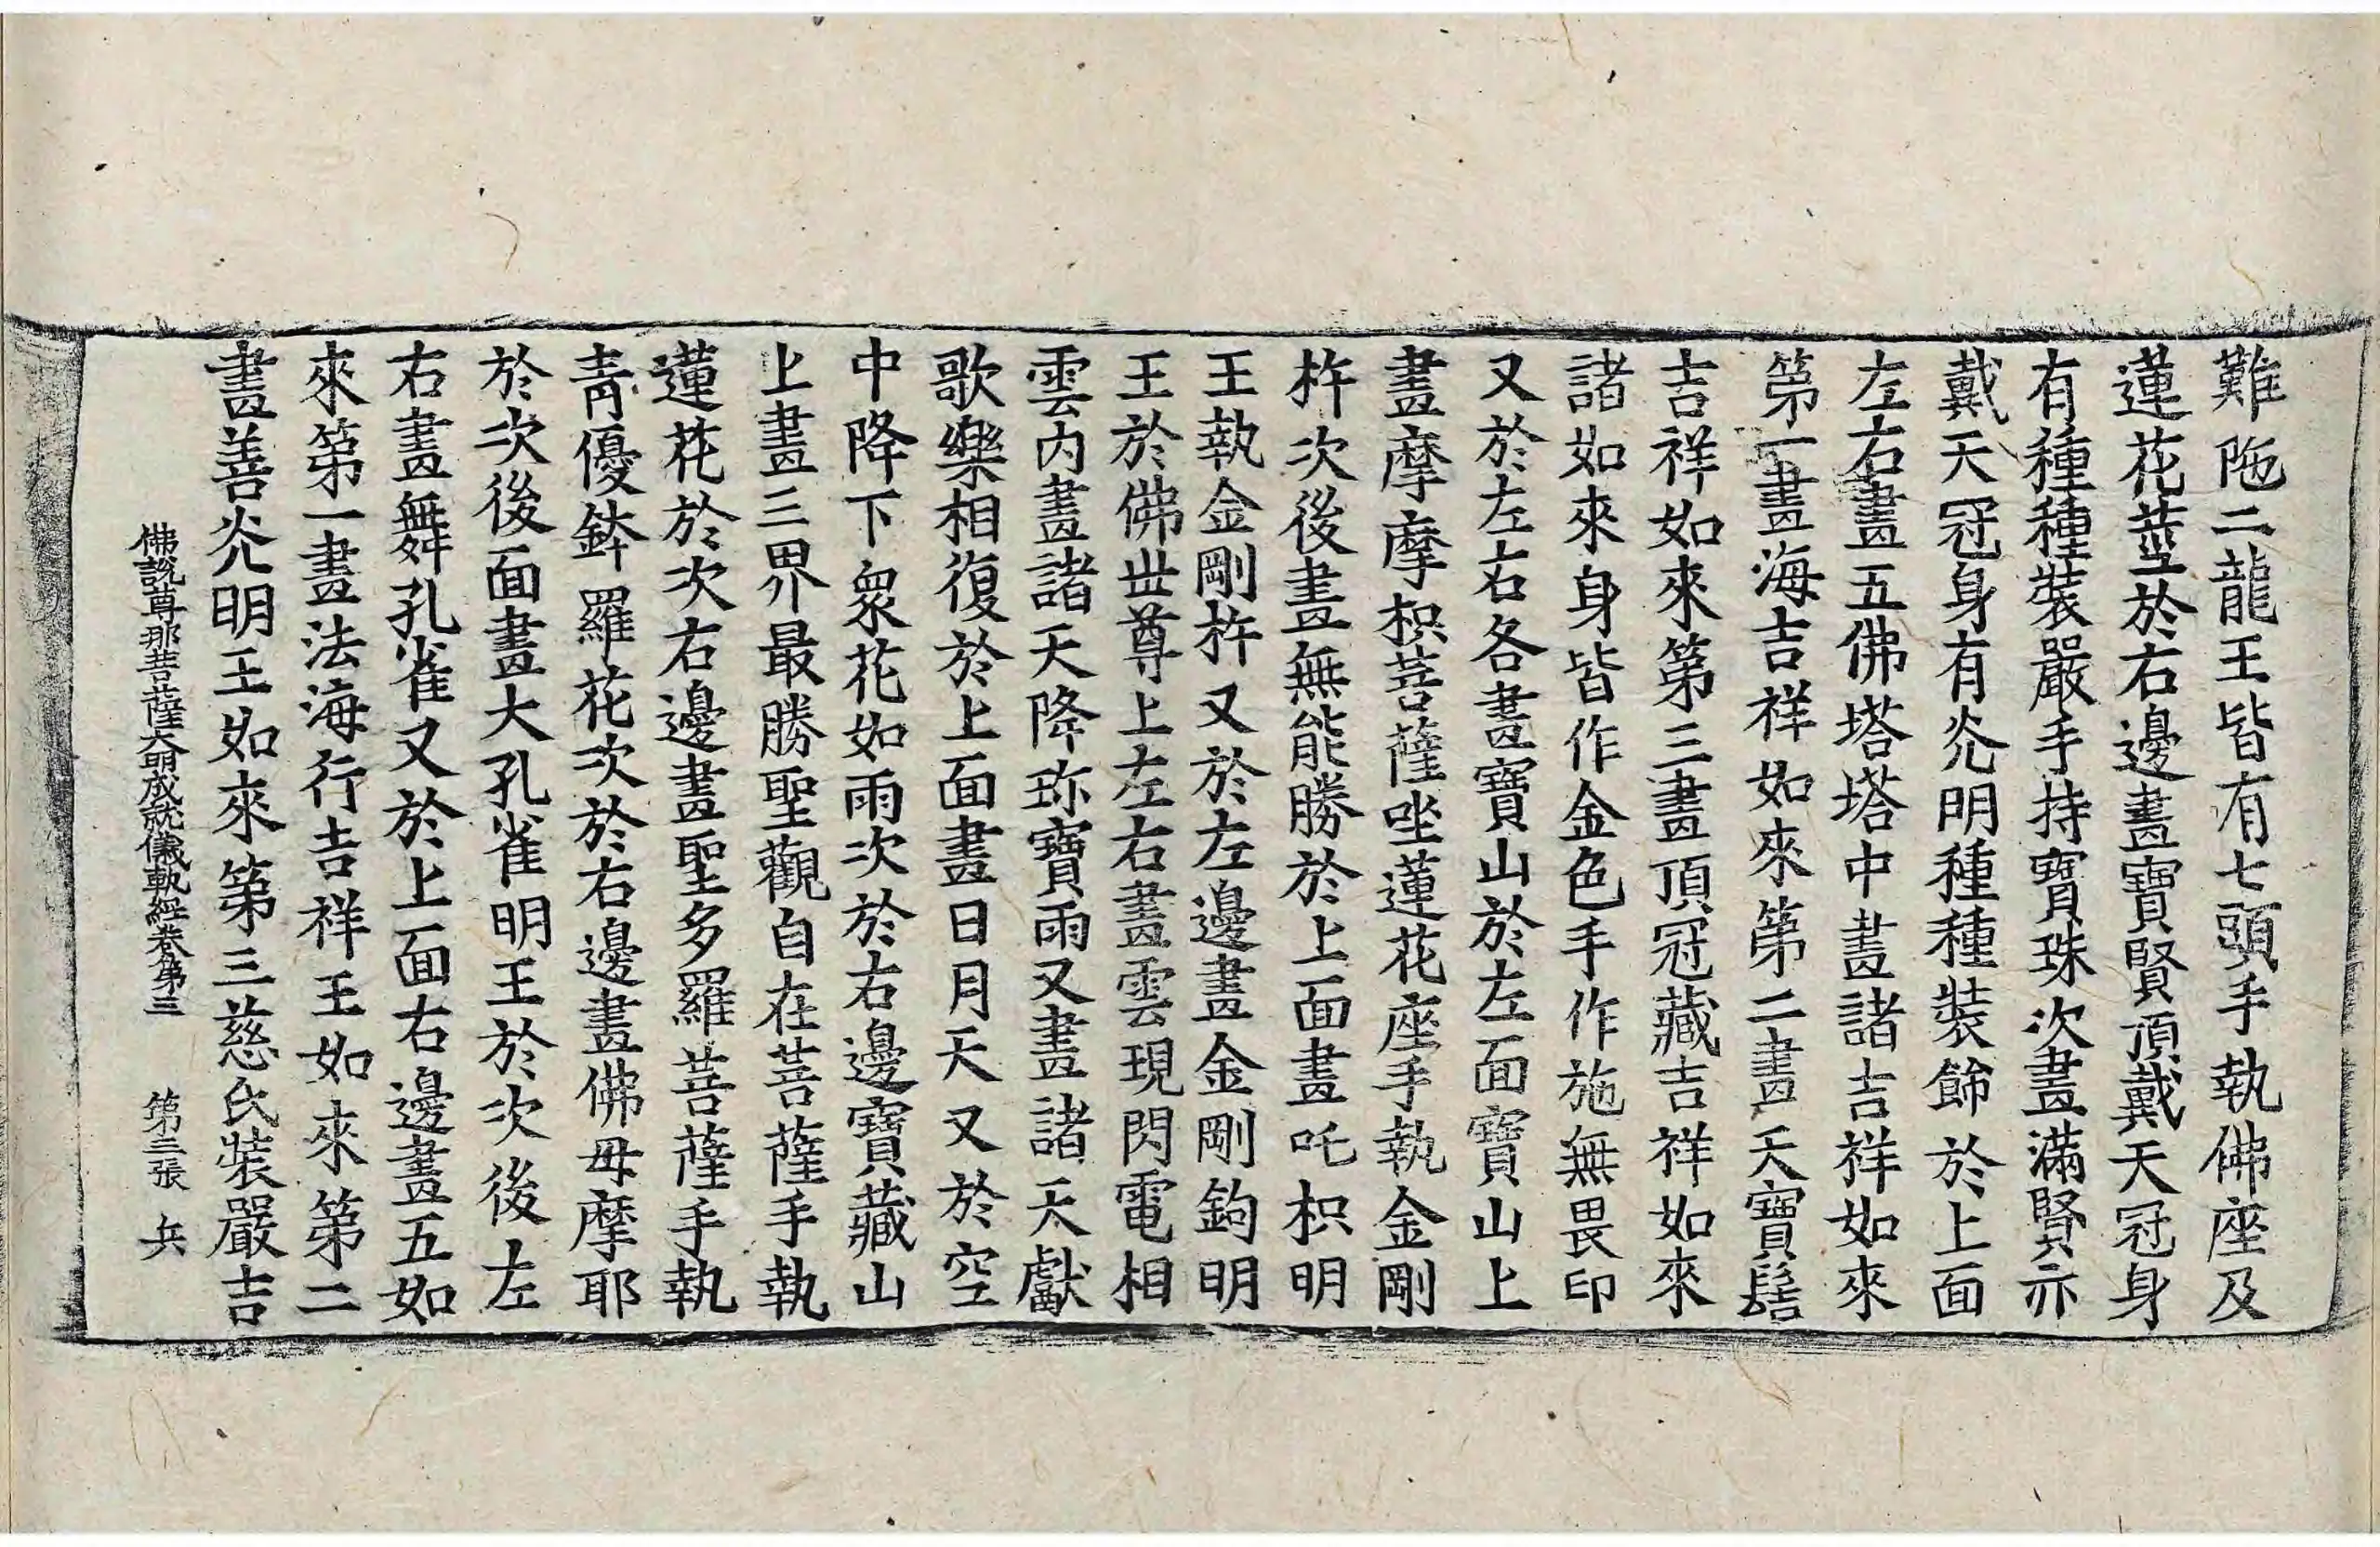 難陁二龍王皆有七頭手執佛座及
蓮花莖於右邊畫寶賢頂戴天冠身
有種種裝嚴手持寶珠次畫滿賢亦
戴天冠身有光明種種裝飾於上面
左右畫五佛塔塔中畫諸吉祥如來
第一畫海吉祥如來第二畫天寶髻
吉祥如來第三畫頂冠藏吉祥如來
諸如來身皆作金色手作施無畏印
又於左右各畫寶山於左面寶山上
畫摩摩枳菩薩坐蓮花座手執金剛
杵次後畫無能勝於上面畫吒枳明
王執金剛杵又於左邊畫金剛鉤明
王於佛世尊上左右畫雲現閃電相
雲内畫諸天降珎寶雨又畫諸天獻
歌樂相復於上面畫日月天又於空
中降下衆花如雨次於右邊寶藏山
上畫三界最勝聖觀自在菩薩手執
蓮花於次右邊畫聖多羅菩薩手執
青優鉢羅花次於右邊畫佛母摩耶
於次後面畫大孔雀明王於次後左
右畫舞孔雀又於上面右邊畫五如
來第一畫法海行吉祥王如來第二
畫善光明王如來第三慈氏裝嚴吉
佛說尊那菩薩大明成就儀軌經卷第三 第三張 兵